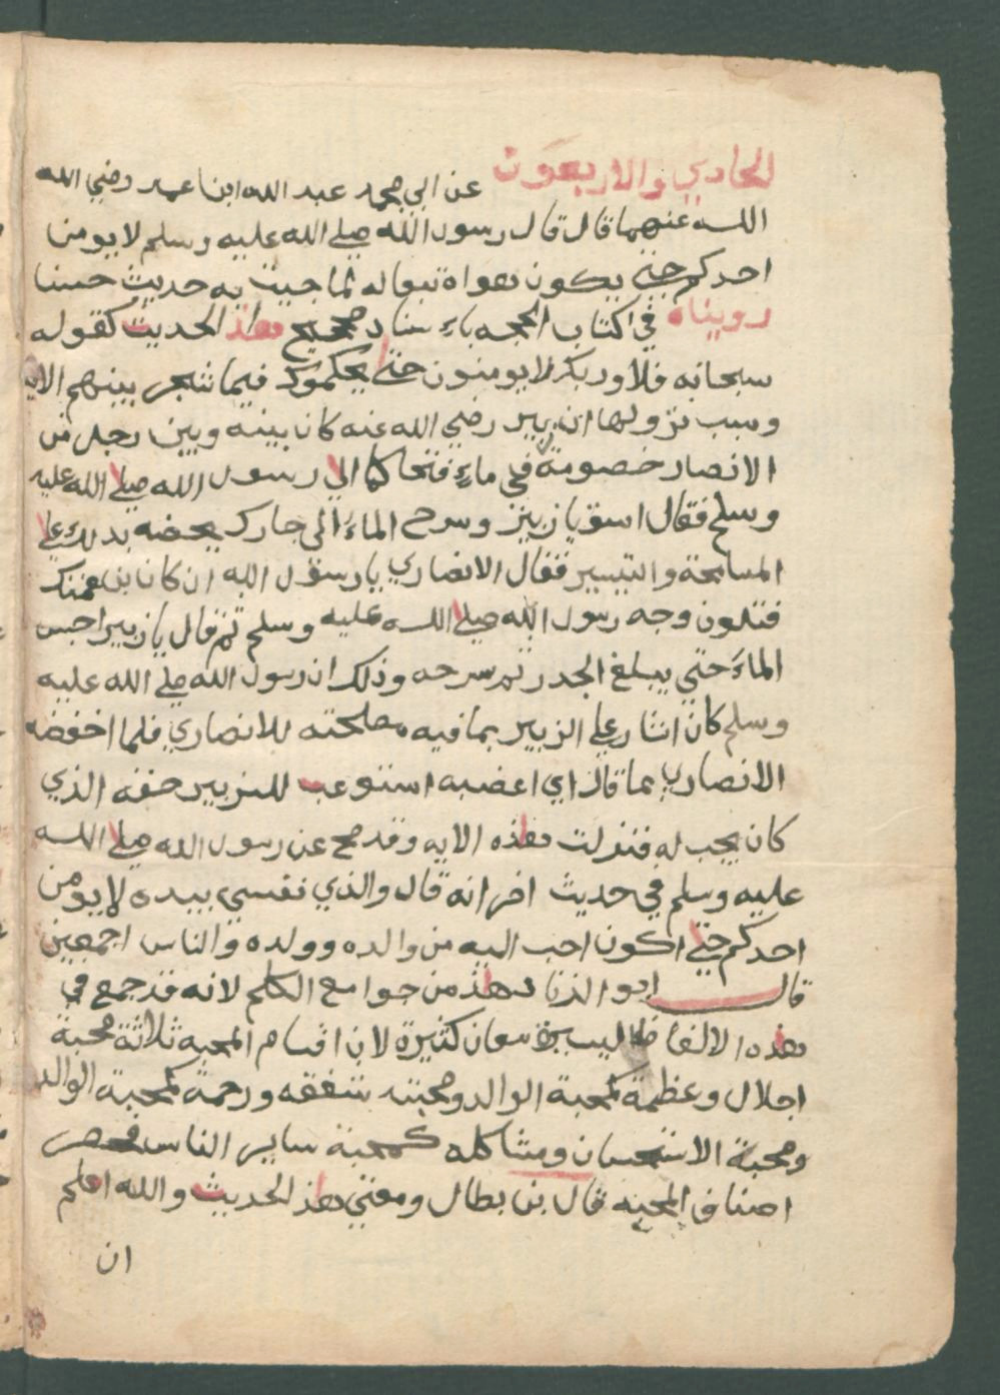 الحادي والاربعون عن ابي محمد عبد الله ابن عمر رضي الله
الله عنهما قال قال رسول الله صلي الله عليه وسلم لا يومن
احدكم حتي يكون هواه تبعا له لما جيت به حديث حسنا
رويناه في اكتاب الحجه باء سناد صحيح هذا الحديث كقوله
سبحانه فلا وربك لا يومنون حتي يحكموك فيما شجر بينهم الايه
وسبب نزولها ان زبير رضي الله عنه كان بينه وبين رجل من
الانصار خصومة في ماء فتحاكما الي رسول الله صلي الله عليه
وسلم فقال اسق يا زبير وسرح الماء الي جارك يحضه بدلك علي
المسامحة والتيسير فقال الانصاري يا رسول الله ان كان بن عمتك
فتلون وجه رسول الله صلي الله عليه وسلم ثم قال يا زبير احبس
الماء حتي يبلغ الجدر ثم سرحه وذلك ان رسول الله صلي الله عليه
وسلم كان اشار علي الزبير بما فيه مصلحته للانصاري فلما اخفضه
الانصاري بما قال اي اغضبه استوعب للزبير حقه الذي
كان يجب له فنزلت هذه الايه وقد صح عن رسول الله صلي الله
عليه وسلم في حديث اخر انه قال والذي نفسي بيده لا يومن
احدكم حتي اكون احب اليه من والده وولده والناس اجمعين
قال ابو الزنا دهذ من جوامع الكلم لانه قد جمع في
هذه الالفاظ اليسيرة معان كثيرة لان اقسام المحبه ثلاثة محبة
اجلال وعظمة كمحبة الوالد ومحبته شفقه ورحمة كمحبة الوالد
ومحبة الاستحسان ومشاكله كمحبة ساير الناس فحصر
اصناف المحبه قال بن بطال ومعني هذ الحديث والله اعلم
ان